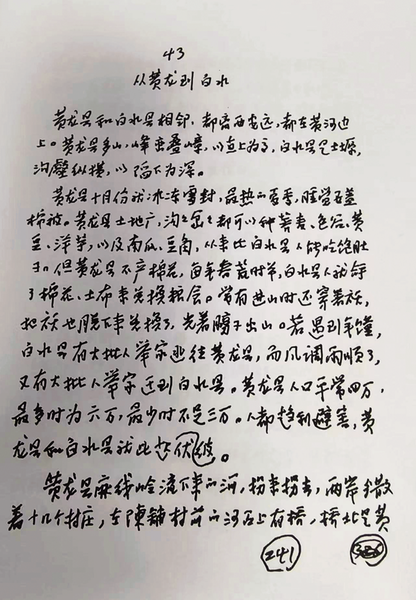 43
从黄龙到白水
黄龙县和白水县相邻，都离西安远，都在黄河边
上。黄龙县多山，峰峦叠嶂，以直上为高，白水县是土塬，
沟壑纵横，以陷下为深。
黄龙县十月份就冰冻雪封，最热的夏季，睡觉还盖
棉被。黄龙县土地广，沟沟岔岔都可以种荞麦、包谷、黄
豆、洋芋，以及南瓜、豆角，从来比白水县人能吃饱肚
子。但黄龙县不产棉花，每年春荒时节，白水县人就背
了棉花、土布来兑换粮食。常有进山时还穿着袄，
把袄也脱下来兑换了，光着膀子出山。若遇到年馑，
白水县有大批人举家逃往黄龙县，而风调雨顺了，
又有大批人举家迁到白水县。黄龙县人口平常四万，
最多时为六万，最少时不足三万。人都趋利避害，黄
龙县和白水县就此起伏彼。
黄龙县麻线岭流下来的河，拐来拐去，两岸散
着十几个村庄，在陈铺村前的河面上有桥，桥北是黄
241